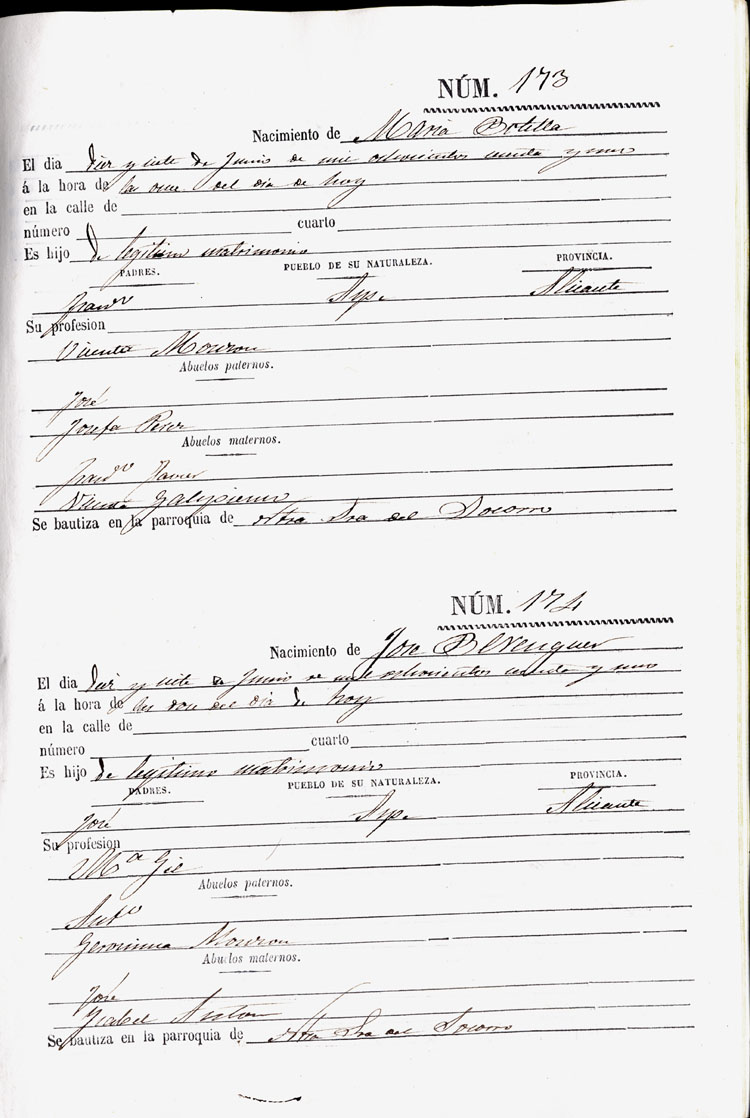 NÚM. 173
Nacimiento de Maria Botella
El dia diez y siete de Junio de mil ochocientos y uno
á la hora de las once del dia de hoy
en la calle de
número cuarto
Es hijo de legitimo matrimonio
PADRES. PUEBLO DE SU NATURALEZA. PROVINCIA.
Franco Asp. Alicante
Su profesion
Vicenta
Abuelos paternos.
José
Josefa Perez
Abuelos maternos.
Franco Javier
Se bautiza en la parroquia de Ntra Sra del Socorro
NÚM. 174
Nacimiento de Jose Berenguer
El dia diez y siete de Junio de mil ochocientos y uno
á la hora de las doce del dia de hoy
en la calle de
número cuarto
Es hijo de legitimo matrimonio
PADRES. PUEBLO DE SU NATURALEZA. PROVINCIA.
José Asp. Alicante
Su profesion
Ma Gil
Abuelos paternos.
Anto
Geronima
Abuelos maternos.
José
Ysabel Anton
Se bautiza en la parroquia de Ntra Sra del Socorro